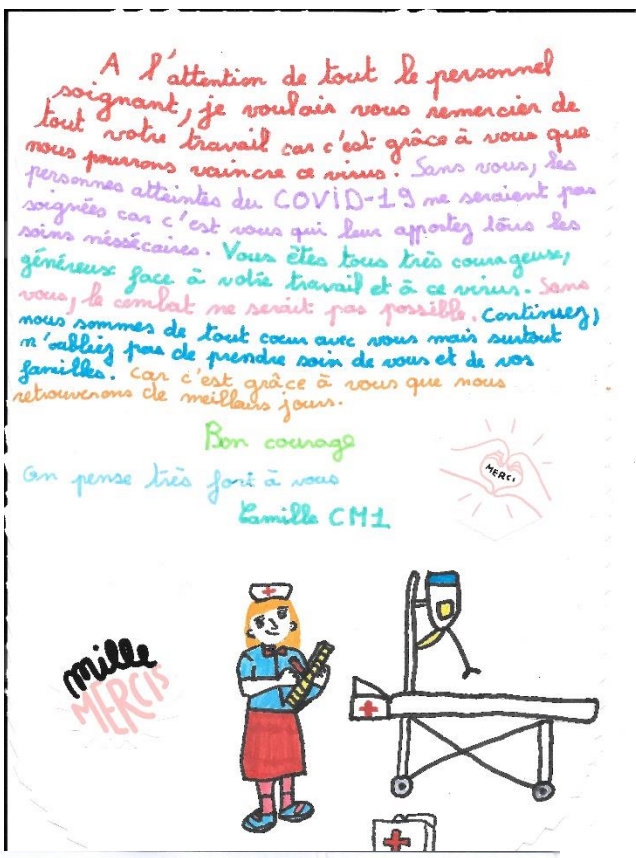 A l'attention de tout le personnel
soignant, je voulais vous remercier de
tout votre travail car c'est grâce à vous que
nous pourrons vaincre ce virus. Sans vous, les
personnes atteintes du COVID-19 ne seraient pas
soignées car c'est vous qui leur apportez tous les
soins néssécaires. Vous êtes tous très courageux,
généreux face à votre travail et à ce virus. Sans
vous, le combat ne serait pas possible. Continuez,
nous sommes de tout coeur avec vous mais surtout
n'oubliez pas de prendre soin de vous et de vos
familles. Car c'est grâce à vous que nous
retrouverons de meilleurs jours.
Bon courage
MERCI
On pense très fort à vous
Camille CM1
mille
MERCIS